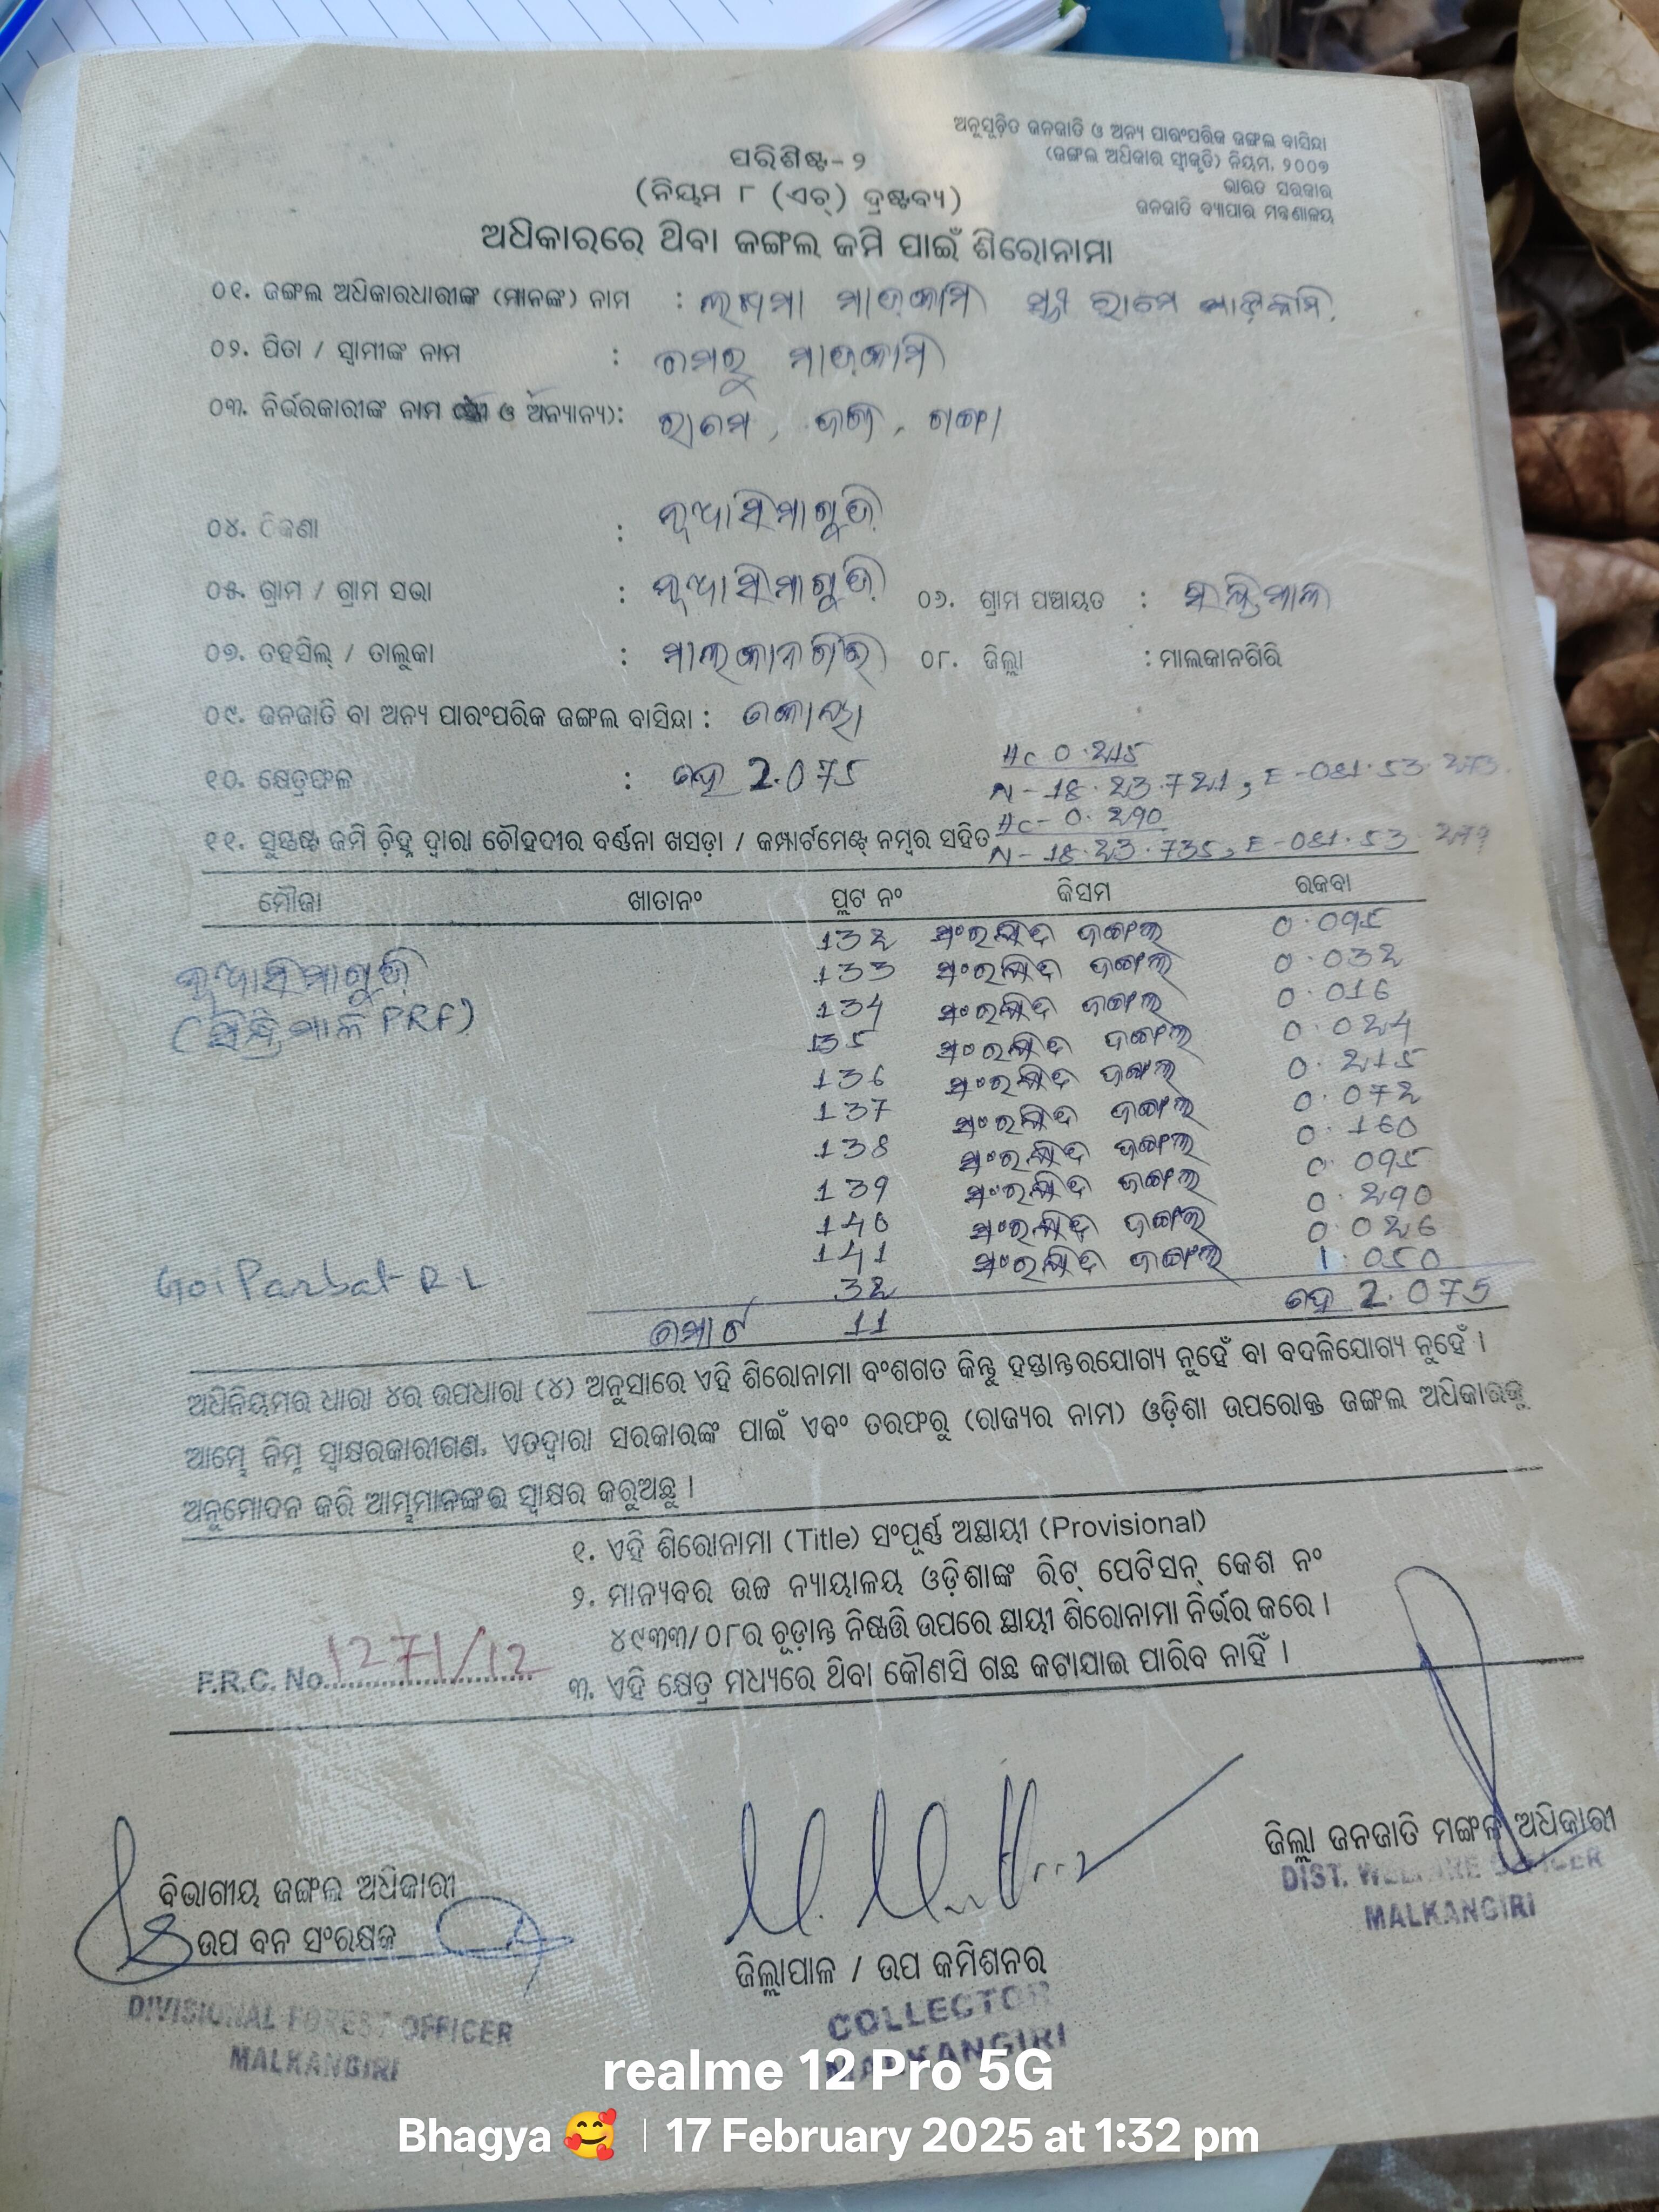 ଅନୁସୂଚିତ ଜନଜାତି ଓ ଅନ୍ୟ ପାରଂପରିକ ଜଙ୍ଗଲ ବାସିନ୍ଦା
(ଜଙ୍ଗଲ ଅଧିକାର ସ୍ୱୀକୃତି) ନିୟମ, ୨୦୦୭
ଭାରତ ସରକାର
ଜନଜାତି ବ୍ୟାପାର ମନ୍ତ୍ରଣାଳୟ
ପରିଶିଷ୍ଟ-୨
(ନିୟମ ୮ (ଏଚ୍) ଦ୍ରଷ୍ଟବ୍ୟ)
ଅଧିକାରରେ ଥିବା ଜଙ୍ଗଲ ଜମି ପାଇଁ ଶିରୋନାମା
୦୧. ଜଙ୍ଗଲ ଅଧିକାରଧାରୀଙ୍କ (ମାନଙ୍କ) ନାମ : ଲଖମା ମାଡ଼କାମି ସ୍ତ୍ରୀ ରାମେ ମାଡ଼କାମି
୦୨. ପିତା / ସ୍ୱାମୀଙ୍କ ନାମ : ମାଡ଼କାମି
୦୩. ନିର୍ଭରକାରୀଙ୍କ ନାମ ଓ ଅନ୍ୟାନ୍ୟ): ରାମେ ,
୦୪. ଠିକଣା : ନୂଆସିମାଗୁଡ଼ି
୦୫. ଗ୍ରାମ / ଗ୍ରାମ ସଭା : ନୂଆସିମାଗୁଡ଼ି ୦୬. ଗ୍ରାମ ପଞ୍ଚାୟତ :
୦୭. ତହସିଲ୍ / ତାଲୁକା : ମାଲକାନଗିରି ୦୮. ଜିଲ୍ଲା : ମାଲକାନଗିରି
୦୯. ଜନଜାତି ବା ଅନ୍ୟ ପାରଂପରିକ ଜଙ୍ଗଲ ବାସିନ୍ଦା : କୋୟା
Hc 0.215
୧୦. କ୍ଷେତ୍ରଫଳ : ହେ 2.075 N-18.23.721, E-081.53.273
Hc-0.290
୧୧. ସୁସ୍ପଷ୍ଟ ଜମି ଚିହ୍ନ ଦ୍ୱାରା ଚୌହଦୀର ବର୍ଣ୍ଣନା ଖସଡ଼ା / କମ୍ପାର୍ଟମେଣ୍ଟ୍ ନମ୍ବର ସହିତ N-18.23.735, E-081.53.279
ମୌଜା ଖାତାନଂ ପ୍ଲଟ ନଂ କିସମ ରକବା
132 ସଂରକ୍ଷିତ ଜଙ୍ଗଲ 0.095
ନୂଆସିମାଗୁଡ଼ି 133 ସଂରକ୍ଷିତ ଜଙ୍ଗଲ 0.032
134 ସଂରକ୍ଷିତ ଜଙ୍ଗଲ 0.016
PRF) 135 ସଂରକ୍ଷିତ ଜଙ୍ଗଲ 0.024
136 ସଂରକ୍ଷିତ ଜଙ୍ଗଲ 0.215
137 ସଂରକ୍ଷିତ ଜଙ୍ଗଲ 0.072
138 ସଂରକ୍ଷିତ ଜଙ୍ଗଲ 0.160
139 ସଂରକ୍ଷିତ ଜଙ୍ଗଲ 0.095
140 ସଂରକ୍ଷିତ ଜଙ୍ଗଲ 0.290
141 ସଂରକ୍ଷିତ ଜଙ୍ଗଲ 0.026
Goi Parbat R L 32 1.050
ମୋଟ 11 ହେ 2.075
ଅଧିନିୟମର ଧାରା ୪ର ଉପଧାରା (୪) ଅନୁସାରେ ଏହି ଶିରୋନାମା ବଂଶଗତ କିନ୍ତୁ ହସ୍ତାନ୍ତରଯୋଗ୍ୟ ନୁହେଁ ବା ବଦଳିଯୋଗ୍ୟ ନୁହେଁ ।
ଆମ୍ଭେ ନିମ୍ନ ସ୍ୱାକ୍ଷରକାରୀଗଣ, ଏତଦ୍ଦ୍ୱାରା ସରକାରଙ୍କ ପାଇଁ ଏବଂ ତରଫରୁ (ରାଜ୍ୟର ନାମ) ଓଡ଼ିଶା ଉପରୋକ୍ତ ଜଙ୍ଗଲ ଅଧିକାରକୁ
ଅନୁମୋଦନ କରି ଆମ୍ଭମାନଙ୍କର ସ୍ୱାକ୍ଷର କରୁଅଛୁ ।
୧. ଏହି ଶିରୋନାମା (Title) ସଂପୂର୍ଣ୍ଣ ଅସ୍ଥାୟୀ (Provisional)
୨. ମାନ୍ୟବର ଉଚ୍ଚ ନ୍ୟାୟାଳୟ ଓଡ଼ିଶାଙ୍କ ରିଟ୍ ପେଟିସନ୍ କେଶ ନଂ
୪୯୩୩/୦୮ର ଚୂଡ଼ାନ୍ତ ନିଷ୍ପତ୍ତି ଉପରେ ସ୍ଥାୟୀ ଶିରୋନାମା ନିର୍ଭର କରେ ।
F.R.C. No. 1271/12 ୩. ଏହି କ୍ଷେତ୍ର ମଧ୍ୟରେ ଥିବା କୌଣସି ଗଛ କଟାଯାଇ ପାରିବ ନାହିଁ ।
ଜିଲ୍ଲା ଜନଜାତି ମଙ୍ଗଳ ଅଧିକାରୀ
DIST. WELFARE OFFICER
MALKANGIRI
ବିଭାଗୀୟ ଜଙ୍ଗଲ ଅଧିକାରୀ
ଉପ ବନ ସଂରକ୍ଷକ
DIVISIONAL FOREST OFFICER
MALKANGIRI
ଜିଲ୍ଲାପାଳ / ଉପ କମିଶନର
COLLECTOR
MALKANGIRI
realme 12 Pro 5G
Bhagya 🥰 | 17 February 2025 at 1:32 pm